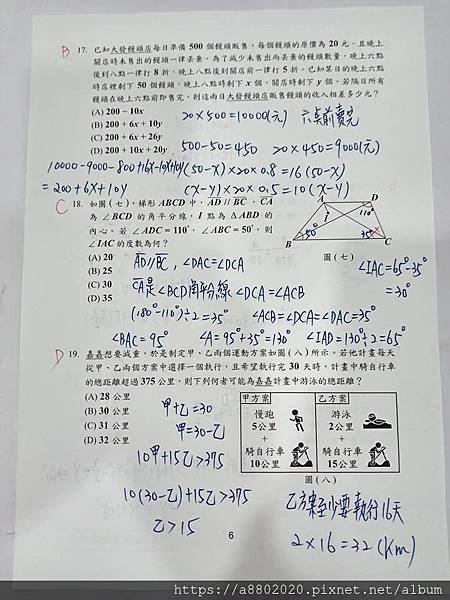 B 17. 已知大發饅頭店每日準備 500 個饅頭販售，每個饅頭的原價為 20 元，且晚上
關店時未售出的饅頭一律丟棄。為了減少未售出而丟棄的饅頭數量，晚上六點
後到八點一律打 8 折，晚上八點後到關店前一律打 5 折。已知某日的晚上六點
時店裡剩下 50 個饅頭，晚上八點時剩下 x 個，關店時剩下 y 個。若隔日所有
饅頭在晚上六點前即售完，則這兩日大發饅頭店販售饅頭的收入相差多少元？
(A) 200－10x
20×500=10000(元) 六點前賣完
(B) 200＋6x＋10y
(C) 200＋6x＋26y
500-50=450 20×450=9000(元)
(D) 200＋10x＋20y
10000-9000-800+16x-10x+10y
(50-x)×20×0.8=16(50-x)
=200+6x+10y
(x-y)×20×0.5=10(x-y)
C 18. 如圖(七)，梯形 ABCD 中，AD // BC，CA
為 ∠BCD 的角平分線，I 點為 △ABD 的
內心。若 ∠ADC＝110°，∠ABC＝50°，則
∠IAC 的度數為何？
A D
I 110°
50° 35°
B C
圖(七)
(A) 20
(B) 25
(C) 30
(D) 35
AD//BC，∠DAC=∠DCA
CA是∠BCD角平分線 ∠DCA=∠ACB
(180°-110°)÷2=35° ∠ACB=∠DCA=∠DAC=35°
∠BAC=95° ∠A=95°+35°=130° ∠IAD=130°÷2=65°
∠IAC=65°-35°
=30°
D 19. 嘉嘉想要減重，於是制定甲、乙兩個運動方案如圖(八)所示。若他計畫每天
從甲、乙兩個方案中選擇一個執行，且希望執行完 30 天時，計畫中騎自行車
的總距離超過 375 公里，則下列何者可能為嘉嘉計畫中游泳的總距離？
(A) 28 公里
(B) 30 公里
(C) 31 公里
(D) 32 公里
甲+乙=30
甲=30-乙
10甲+15乙>375
10(30-乙)+15乙>375
乙>15
甲方案
慢跑
5公里
＋
騎自行車
10公里
乙方案
游泳
2公里
＋
騎自行車
15公里
圖(八)
乙方案至少要執行16天
2×16=32(km)
6
https://a8802020.pixnet.net/album